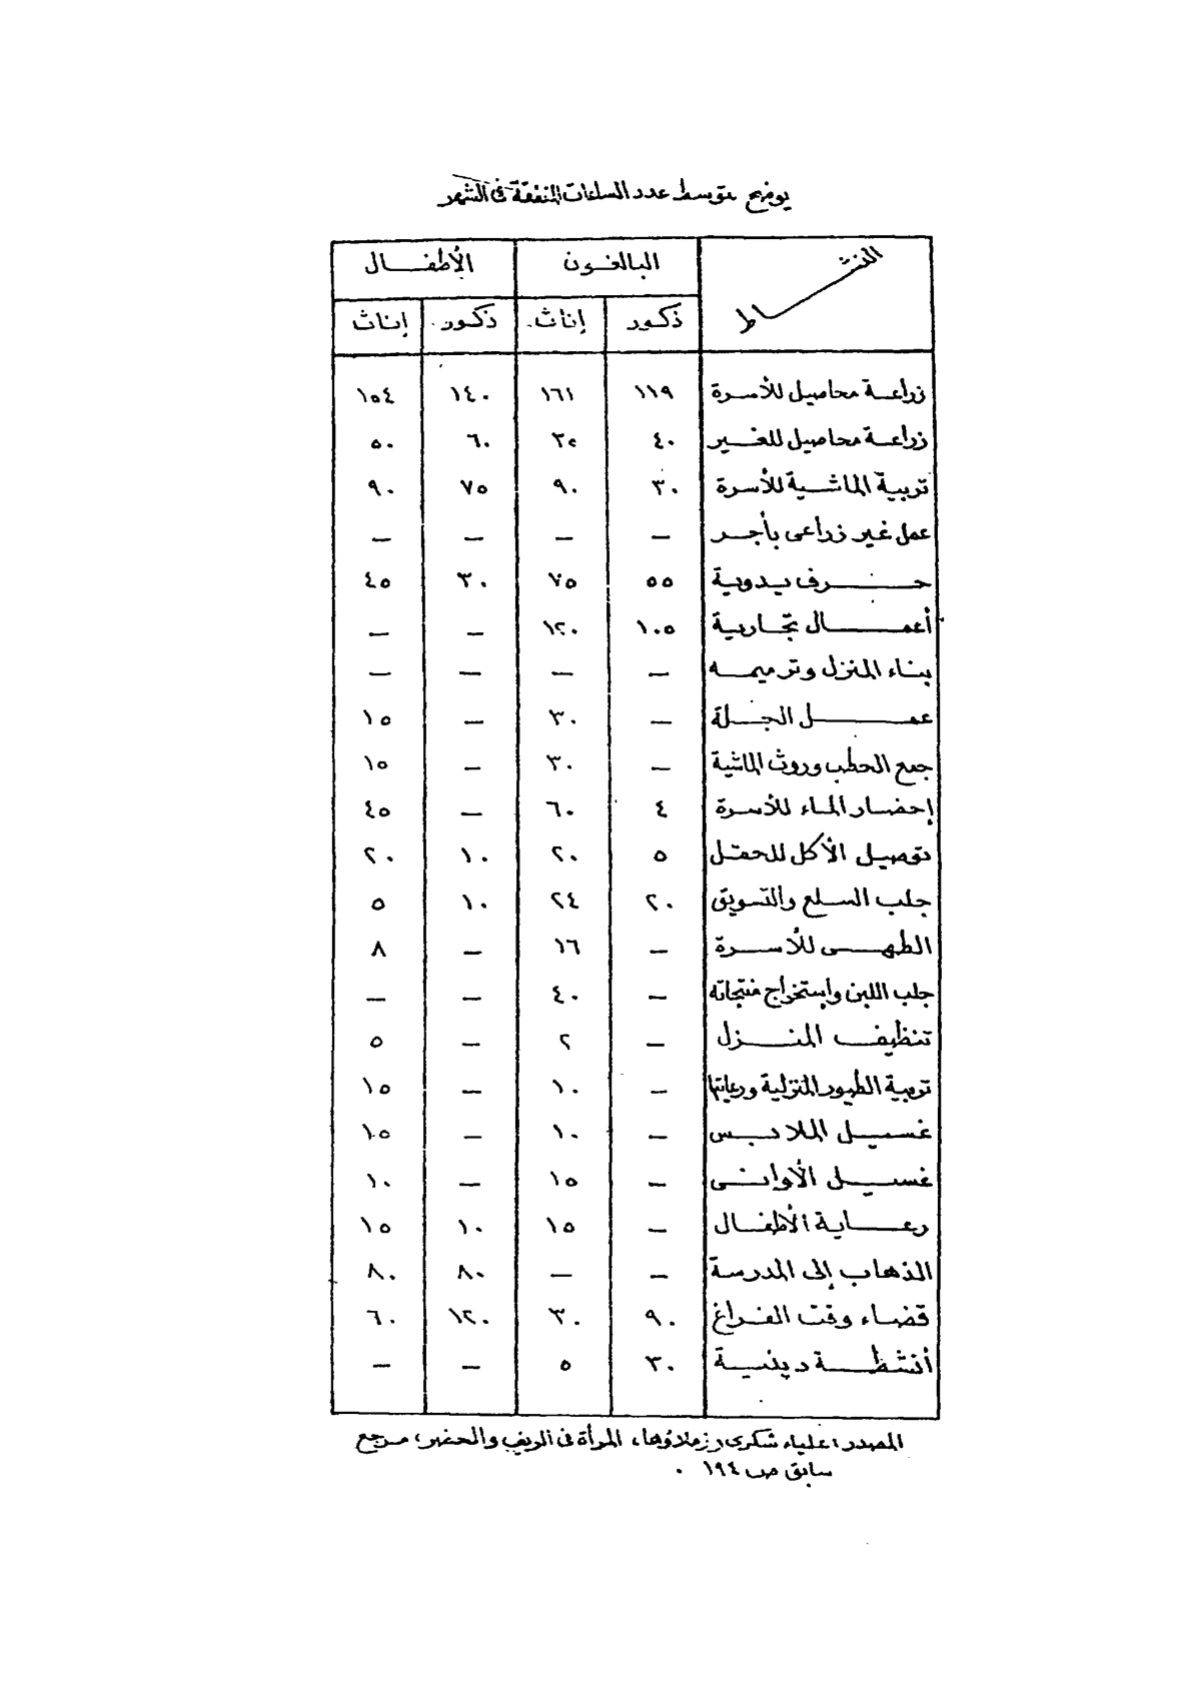 يوضح متوسط عدد الساعات المنفقة فى الشهر
النشاط البالغون الأطفال
ذكور إناث ذكور إناث
زراعة محاصيل للأسرة ١١٩ ١٦١ ١٤٠ ١٥٤
زراعة محاصيل للغير ٤٠ ٦٠ ٥٠
تربية الماشية للأسرة ٣٠ ٩٠ ٧٥ ٩٠
عمل غير زراعى بأجر — — — —
حرف يدوية ٥٥ ٧٥ ٣٠ ٤٥
أعمال تجارية ١٠٥ ١٢٠ — —
بناء المنزل وترميمه — — — —
عمل الجلة — ٣٠ — ١٥
جمع الحطب وروث الماشية — ٣٠ — ١٥
إحضار الماء للأسرة ٤ ٦٠ — ٤٥
توصيل الأكل للحقل ٥ ٢٠ ١٠ ٢٠
جلب السلع والتسويق ٢٠ ٢٤ ١٠ ٥
الطهى للأسرة — ١٦ — ٨
جلب اللبن وإستخراج منتجاته — ٤٠ — —
تنظيف المنزل — ٢ — ٥
تربية الطيور المنزلية ورعايتها — ١٠ — ١٥
غسيل الملابس — ١٠ —
غسيل الأوانى — ١٥ — ١٠
رعاية الأطفال — ١٥ ١٠ ١٥
الذهاب إلى المدرسة — — ٨٠ ٨٠
قضاء وقت الفراغ ٩٠ ٣٠ ١٢٠ ٦٠
أنشطة دينية ٣٠ ٥ — —
المصدر: علياء شكرى وزملاؤها، المرأة فى الريف والحضر، مرجع
سابق ص ١٩٤ .